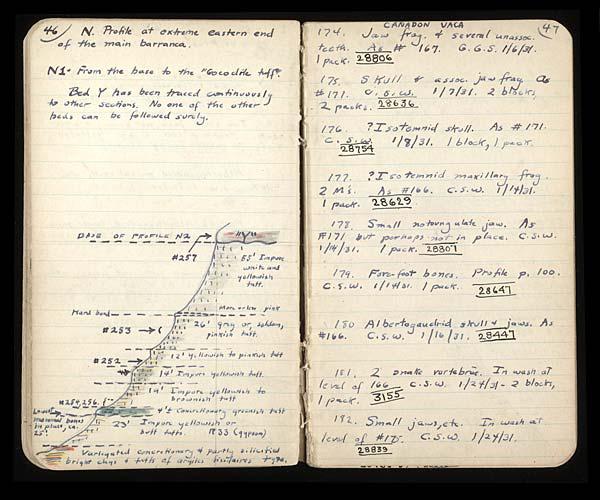 46
N. Profile at extreme eastern end
of the main barranca.
N1- From the base to the "Cocodile tuff".
Bed Y has been traced continuously
to other sections. No one of the other
beds can be followed surely.
BASE OF PROFILE N2
#257
55' Impure
white and
yellowish
tuff.
Hard band
More or less pink
#253
26' gray or, seldom,
pinkish tuff.
#252
12' yellowish to pinkish tuff
14' Impure yellowish tuff.
19' Impure yellowish to
brownish tuff
#254, 256.
4'± Concretionary greenish tuff
Lowest
mammal bones
in place, ca.
25'.
23' Impure yellowish or
buff tuffs. R33 (gypsum)
Variegated concretionary & partly silicified
bright clays & tuffs of argiles fissilaires type.
CANADON VACA
47
174. Jaw frag. & several unassoc.
teeth. As # 167. G.G.S. 1/6/31.
1 pack. 28806
175. Skull & assoc. jaw frag. As
#171. C.S.W. 1/7/31. 2 blocks,
2 packs. 28636
176. ?Isotemnid skull. As #171.
C.S.W. 1/8/31. 1 block, 1 pack.
28754
177. ?Isotemnid maxillary frag.
2 M's. As #166. C.S.W. 1/14/31.
1 pack. 28629
178. Small notoungulate jaw. As
#171 but perhaps not in place. C.S.W.
1/14/31. 1 pack. 28801
179. Fore-foot bones. Profile p. 100.
C.S.W. 1/14/31. 1 pack. 28647
180 Albertogaudrid skull & jaws. As
#166. C.S.W. 1/16/31. 28447
181. 2 snake vertebrae. In wash at
level of 166 C.S.W. 1/24/31- 2 blocks,
1 pack. 3155
182. Small jaws, etc. In wash at
level of #175. C.S.W. 1/24/31.
28839